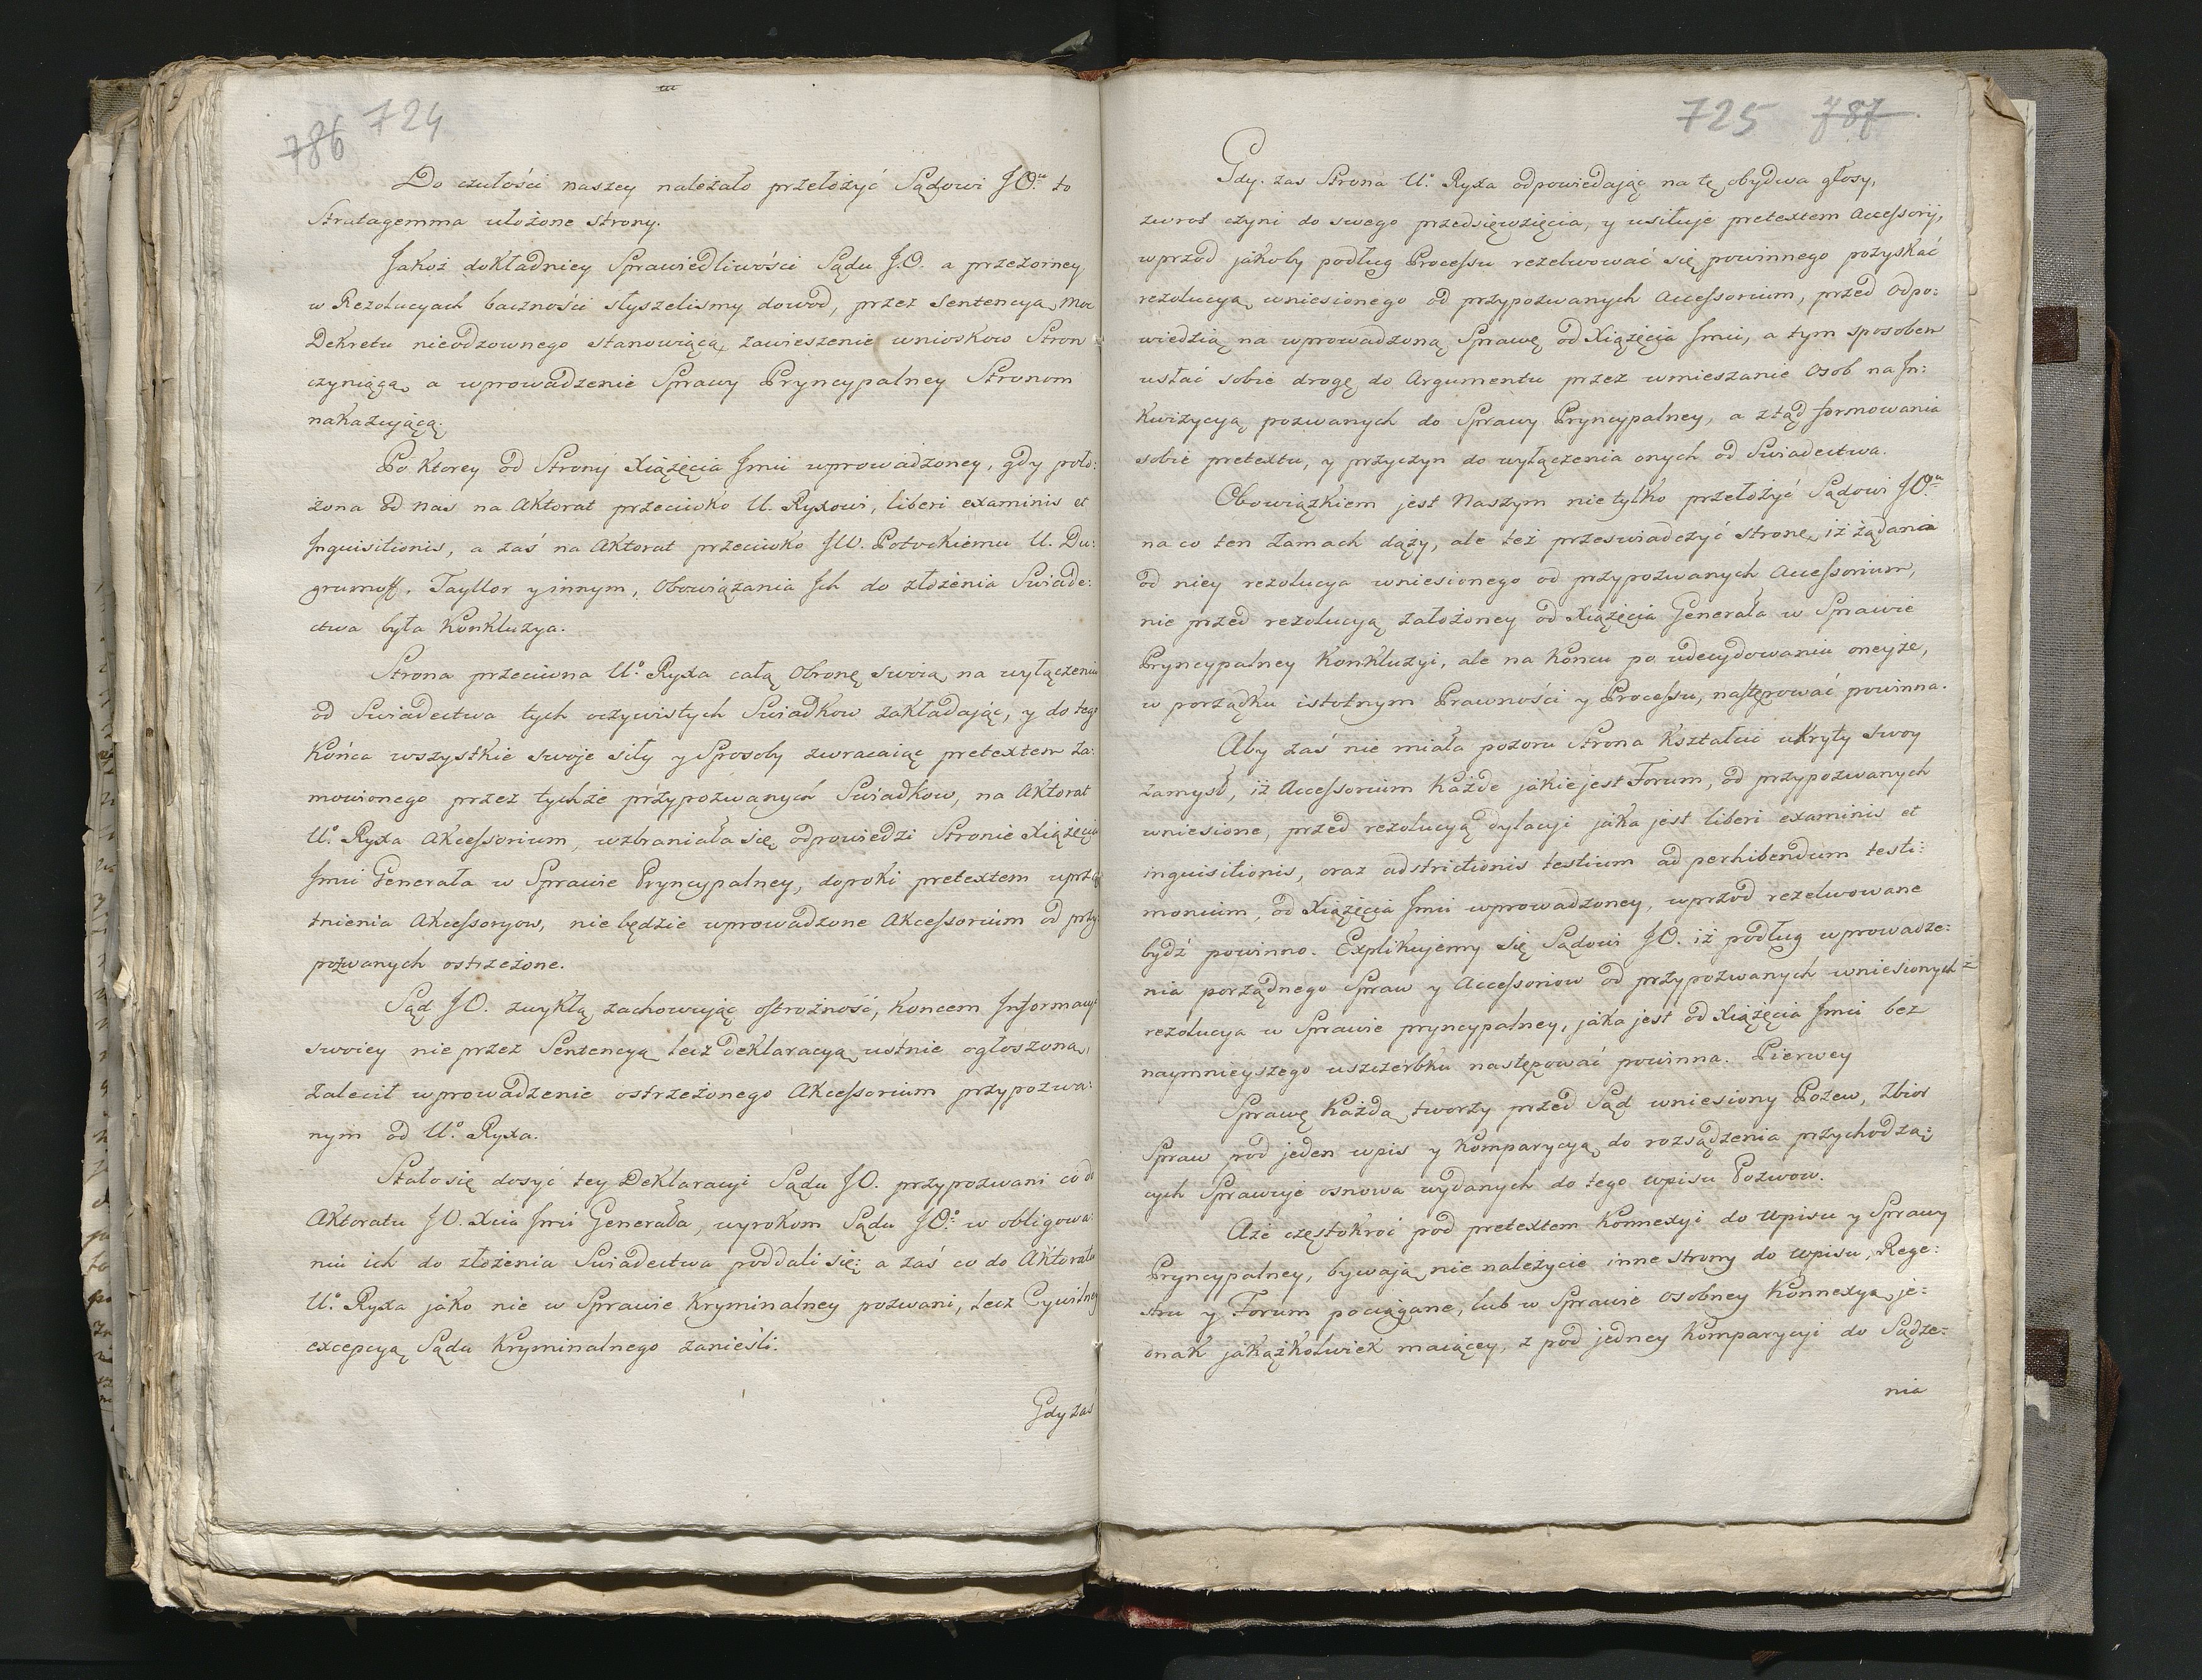 786 724
Do czułości naszey należało przełożyć Sądowi JO.u to
Stratagemma ułożone strony.
Jakoż dokładniey Sprawiedliwości Sądu J.O. a przezorney
w Rezolucyach baczności słyszelismy dowod, przez Sentencyą moc
Dekretu nieodzownego stanowiącą, zawieszenie wnioskow Stron
czyniącą, a wprowadzenie Sprawy Pryncypalney Stronom
nakazującą.
Po ktorey od Strony Xiążęcia Jmci wprowadzoney, gdy poło:
żona od nas na Aktorat przeciwko U. Ryxowi, liberi examinis et
Inquisitionis, a zaś na Aktorat przeciwko JW. Potockiemu U. Du:
grumoff, Tayllor y innym, Obowiązania Ich do złożenia Swiade:
ctwa była Konkluzya.
Strona przeciwna U.o Ryxa całą Obronę swoią na wyłączeniu
od Swiadectwa tych oczywistych Swiadkow zakładając, y do tego
Końca wszystkie swoje siły y Sposoby zwracaiąc pretextem za:
mowionego przez tychże przypozwanych Swiadkow, na Aktorat
U.o Ryxa Akcessorium, wzbraniała się odpowiedzi Stronie Xiążęcia
Jmci Generała w Sprawie Pryncypalney, dopoki pretextem uprzą
tnienia Akcessoryow, nie będzie wprowadzone Akcessorium od przy:
pozwanych ostrzeżone.
Sąd JO. zwykłą zachowując ostrożność, Koncem Informacyi
swoiey nie przez Sentencyą lecz deklaracyą ustnie ogłoszoną,
zalecił wprowadzenie ostrzeżonego Akcessorium przypozwa:
nym od U.o Ryxa.
Stało się dosyć tey Deklaracyi Sądu JO. przypozwani co do
Aktoratu JO. Xcia Jmci Generała, wyrokom Sądu JO.o w obligowa
niu ich do złożenia Swiadectwa poddali się; a zaś co do Aktoratu
U.o Ryxa jako nie w Sprawie Kryminalney pozwani, lecz Cywilney
excepcyą Sądu Kryminalnego zanieśli.
Gdy zaś
725 787
Gdy zas Strona U.o Ryxa odpowiedając na tę obydwa głosy,
zwrot czyni do swego przedsięwzięcia, y usiłuje pretextem Accessorij,
wprzod jakoby podług Processu rezolwować się powinnego pozyskać
rezolucyą wniesionego od przypozwanych Accessorium, przed Odpo:
wiedzią na wprowadzoną Sprawę od Xiążęcia Jmci, a tym sposobem
usłać sobie drogę do Argumentu przez wmieszanie Osob na In:
kwizycyą pozwanych do Sprawy Pryncypalney, a ztąd formowania
sobie pretextu, y przyczyn do wyłączenia onych od Swiadectwa.
Obowiązkiem jest Naszym nie tylko przełożyć Sądowi JO.u
na co ten zamach dąży, ale też przeswiadczyć stronę, iż żądania
od niey rezolucya wniesionego od przypozwanych Accessorium,
nie przed rezolucyą założoney od Xiążęcia Generała w Sprawie
Pryncypalney Konkluzyi, ale na Koncu po udecydowaniu oneyże,
w porządku istotnym Prawności y Processu, następować powinna.
Aby zaś nie miała pozoru Strona Kształcić ukryty swoy
zamysł, iż Accessorium Każde jakie jest Forum, od przypozwanych
wniesione, przed rezolucyą dylacyi jaka jest liberi examinis et
inquisitionis, oraz adstrictionis testium ad perhibendum testi:
monium, od Xiążęcia Jmci wprowadzoney, wprzod rezolwowane
bydź powinno. Explikujemy się Sądowi JO. iż podług wprowadze:
nia porządnego Spraw y Accessoriow od przypozwanych wniesionych
rezolucya w Sprawie pryncypalney, jaka jest od Xiążęcia Jmci bez
naymnieyszego uszczerbku następować powinna. Pierwey
Sprawę Każdą tworzy przed Sąd wniesiony Pozew, Zbior
Spraw pod jeden wpis y Komparycyą do rozsądzenia przychodzą:
cych Sprawuje osnowa wydanych do tego wpisu Pozwow.
Aże częstokroć pod pretextem Konnexyi do Wpisu y Sprawy
Pryncypalney, bywają nie należycie inne strony do Wpisu, Rege:
stru y Forum pociągane, lub w Sprawie osobney Konnexyą je:
dnak jakążkolwiek maiącey, z pod jedney Komparycyi do Sądze:
nia